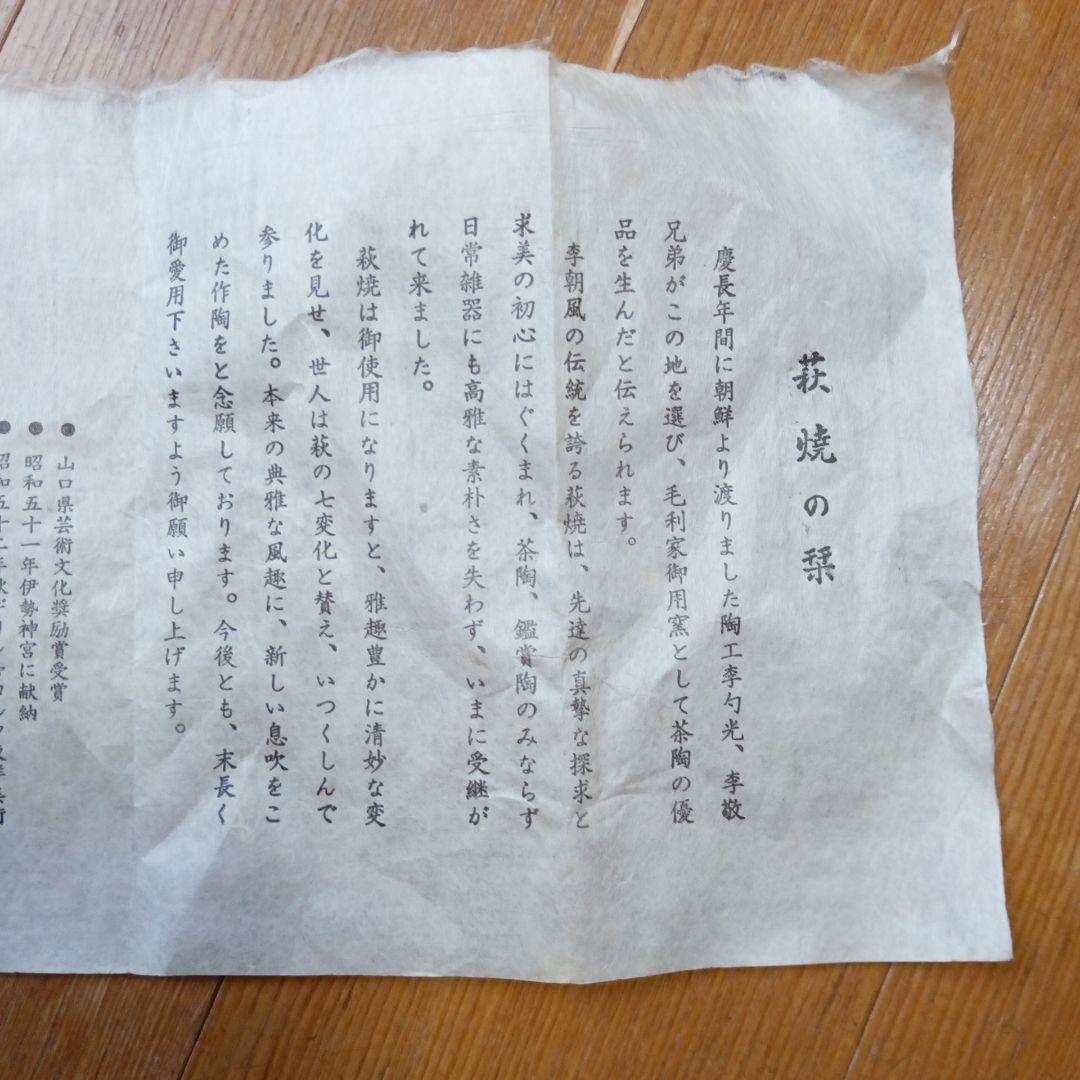 萩焼の栞
慶長年間に朝鮮より渡りました陶工李勺光、李敬
兄弟がこの地を選び、毛利家御用窯として茶陶の優
品を生んだと伝えられます。
李朝風の伝統を誇る萩焼は、先達の真摯な探求と
求美の初心にはぐくまれ、茶陶、鑑賞陶のみならず
日常雑器にも高雅な素朴さを失わず、いまに受継が
れて来ました。
萩焼は御使用になりますと、雅趣豊かに清妙な変
化を見せ、世人は萩の七変化と賛え、いつくしんで
参りました。本来の典雅な風趣に、新しい息吹をこ
めた作陶をと念願しております。今後とも、末長く
御愛用下さいますよう御願い申し上げます。
●山口県芸術文化奨励賞受賞
●昭和五十一年伊勢神宮に献納